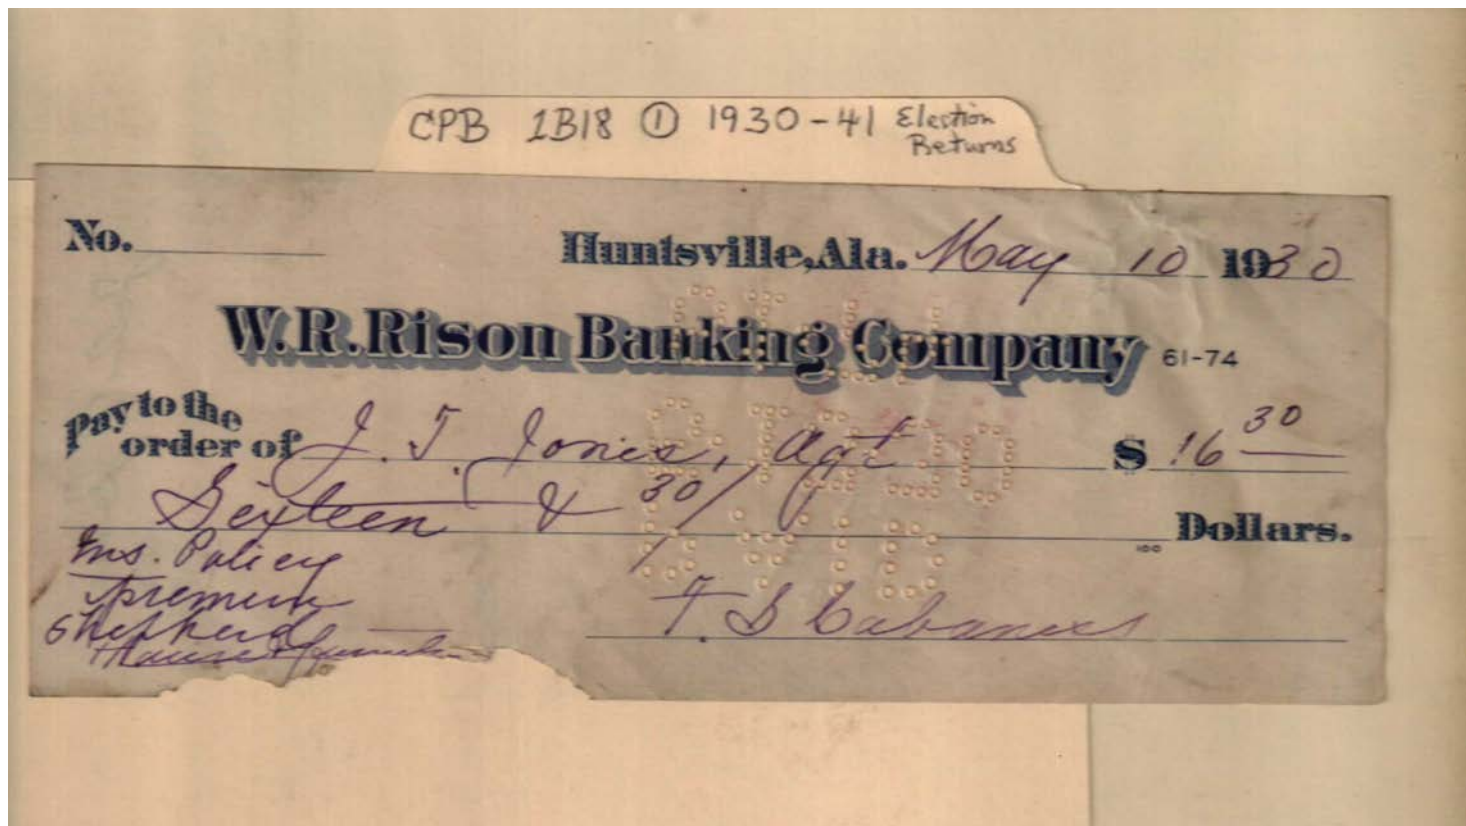 CPB 1B18 ① 1930-41 Election
Returns
No.
Huntsville, Ala. May 10 1930
W.R. Rison Banking Company 61-74
Pay to the
order of J. T. Jones, Agt $ 16 30
Sixteen & 30/100 Dollars.
Ins. Policy
Premium
Shepherd
House & furniture
T. S Cabaniss
PAID